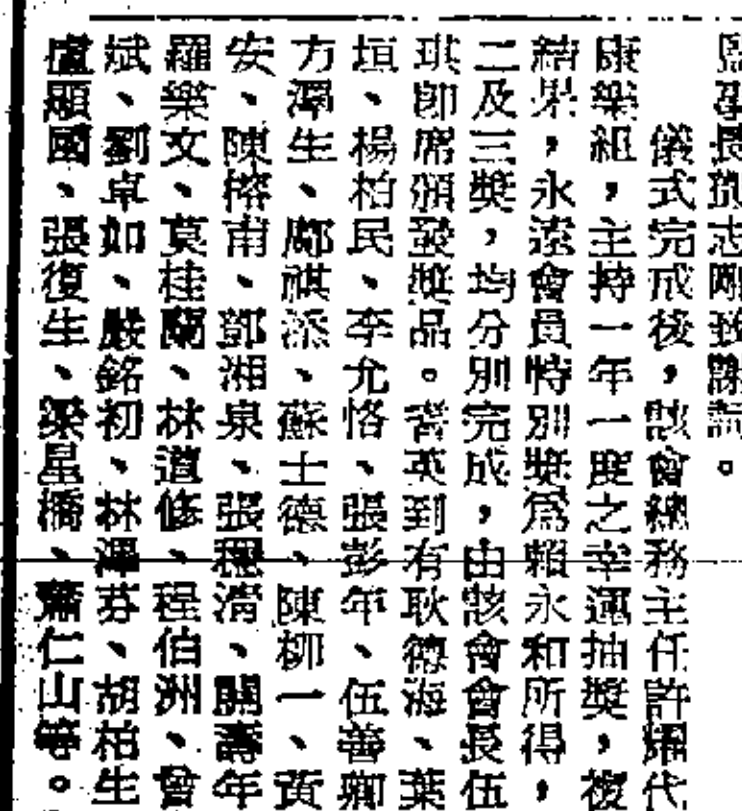 監事長凱志剛致謝詞。
儀式完成後，該會總務主任許耀代
康樂組，主持一年一度之幸運抽獎，複
結果，永遠會員特別獎爲賴永和所得，
二及三獎，均分別完成，由該會會長伍
琪卽席頒發獎品。耆英到有耿德海、葉
垣、楊柏民、李允恪、張彭年、伍善卿
方澤生、鄺祺添、蘇士德、陳柳一、黃
安、陳榕甫、鄧湘泉、張穩淸、關壽年
羅樂文、莫桂蘭、林道修、程伯洲、曾
斌、劉卓如、嚴銘初、林澤芬、胡柏生
盧顯國、張復生、梁星橋、蕭仁山等。